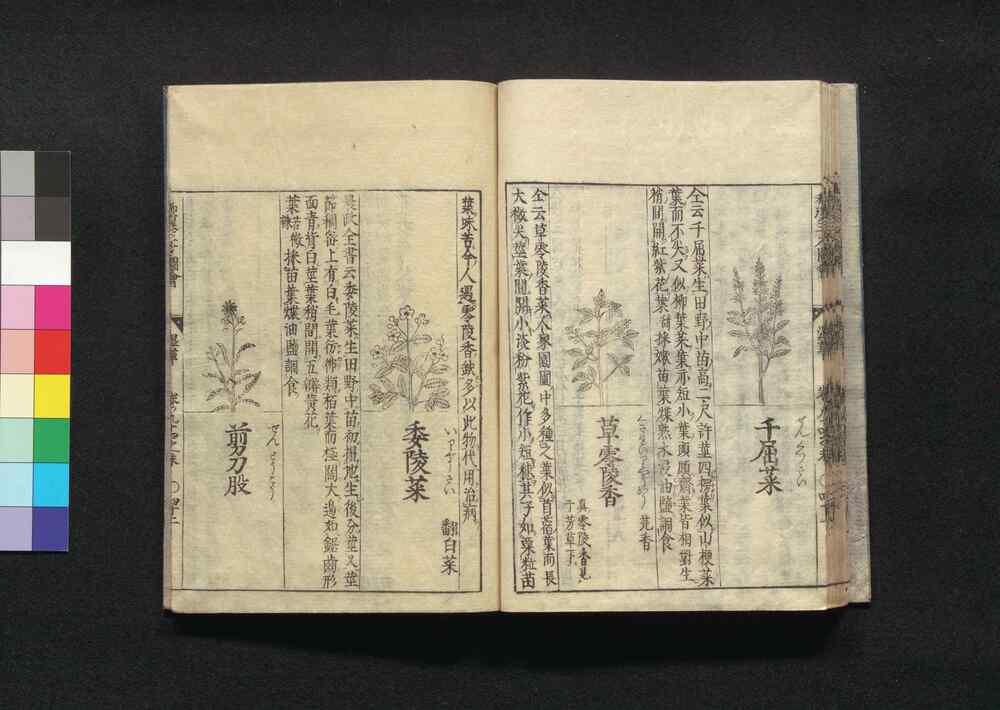 千屈菜
仝云千屈菜生田野中苗高二尺許莖四楞葉似山梗菜
葉而不尖又似柳葉菜葉亦短小葉頭頗齊葉皆相對生
稍間開紅紫花葉甜採嫩苗葉煠熟水浸油鹽調食
草零陵香
芫香
真零陵香見
于芳草下
仝云草零陵香菜人家園圃中多種之葉似苜蓿葉而長
大微尖莖葉間開小淡粉紫花作小短穗其子如粟粒苗
葉味苦今人遇零陵香缺多以此物代用治病
いりやうさい
委陵菜
翻白菜
農政全書云委陵菜生田野中苗初搨地生後分莖叉莖
節稠密上有白毛葉彷彿類栢葉而極闊大邊如鋸齒形
面青背白莖葉稍間開五瓣黃花
葉味苦微辣採苗葉煠油鹽調食
剪刀股